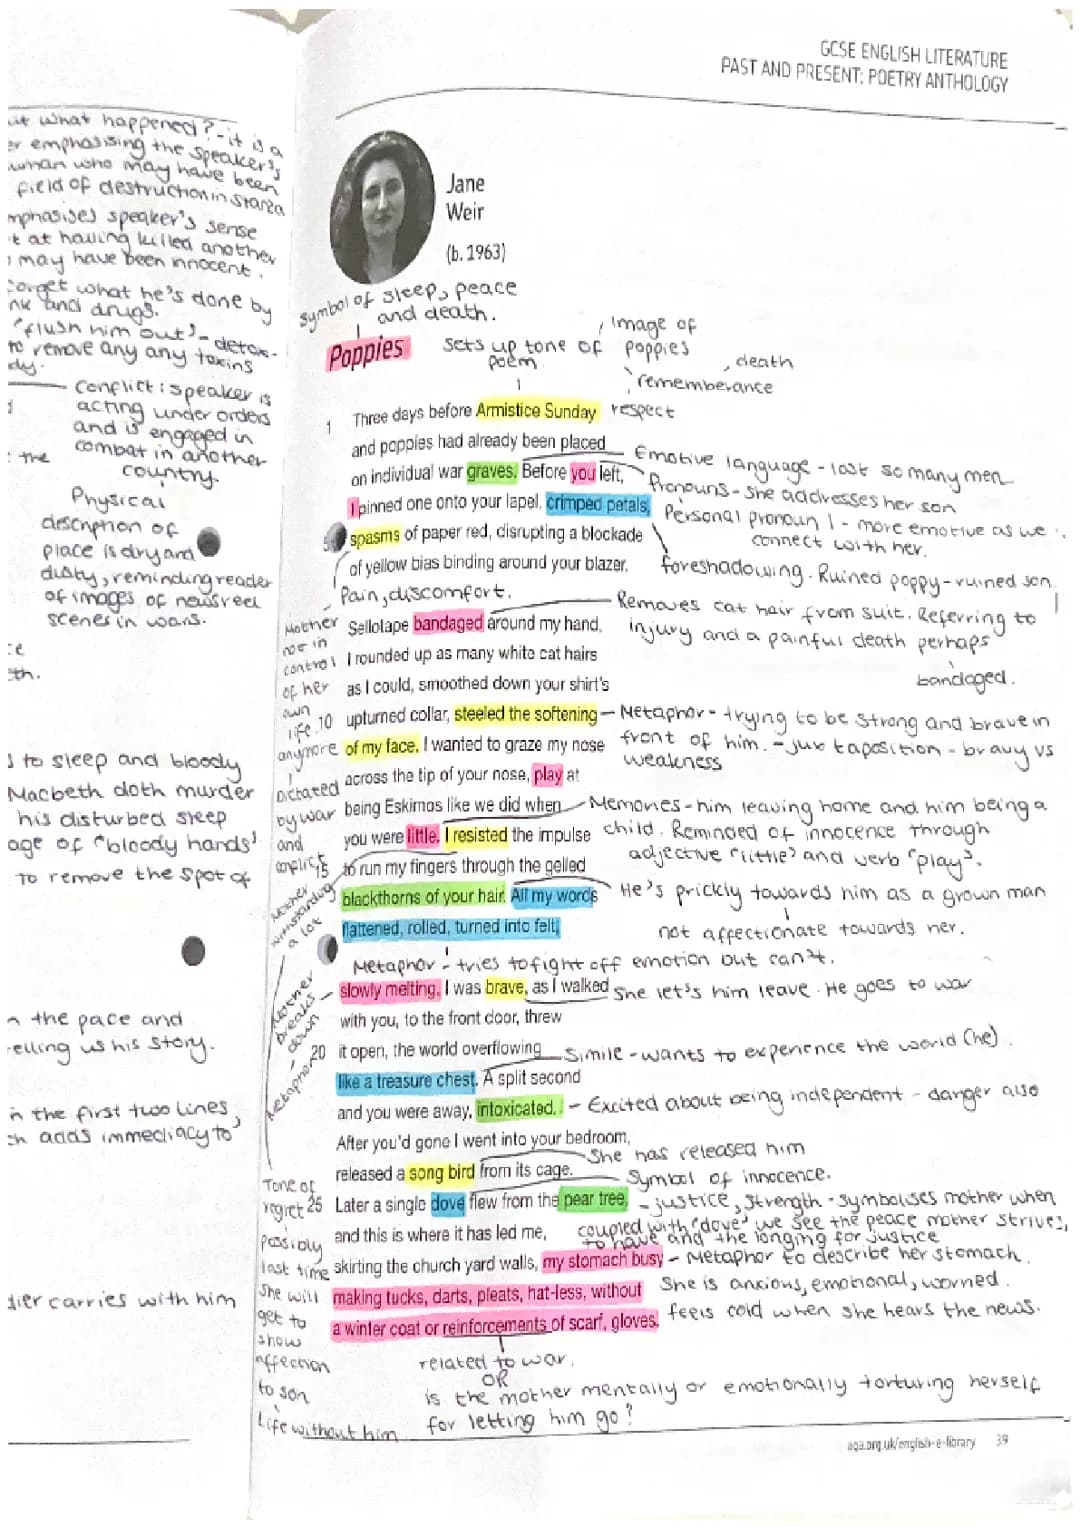 GCSE ENGLISH LITERATURE
PAST AND PRESENT: POETRY ANTHOLOGY
ut what happened? - it is a
er emphasising the speaker's
uman who may have been
field of destruction in stanza
mphasises speaker's sense
t at having killed another
may have been innocent.
forget what he's done by
nk and drugs.
"flush him out" - detox-
to remove any any toxins
dy.
Conflict: speaker is
acting under orders
and is engaged in
combat in another
country.
: the
Physical
description of
place is dry and
dusty, reminding reader
of images of newsreel
scenes in wars.
ce
eth.
s to sleep and bloody
Macbeth doth murder
his disturbed sleep
age of "bloody hands"
to remove the spot of
n the pace and
elling us his story.
n the first two lines,
ch adds immediacy to
dier carries with him
Jane
Weir
(b. 1963)
symbol of sleep, peace
and death.
Poppies
Sets up tone of
poem
Image of
poppies
death
rememberance
1 Three days before Armistice Sunday respect
and poppies had already been placed
on individual war graves. Before you left,
Emotive language - lost so many men
Pronouns - she addresses her son
I pinned one onto your lapel, crimped petals,
Personal pronoun I - more emotive as we
connect with her.
spasms of paper red, disrupting a blockade
of yellow bias binding around your blazer.
foreshadowing. Ruined poppy - ruined son.
Pain, discomfort.
Removes cat hair from suit. Referring to
injury and a painful death perhaps
bandaged.
Sellotape bandaged around my hand,
I rounded up as many white cat hairs
as I could, smoothed down your shirt's
10 upturned collar, steeled the softening
Metaphor - trying to be strong and brave in
front of him. - juxtaposition - bravy vs
weakness
of my face. I wanted to graze my nose
across the tip of your nose, play at
being Eskimos like we did when
Memories - him leaving home and him being a
child. Reminded of innocence through
adjective "little" and verb "play".
you were little. I resisted the impulse
15 to run my fingers through the gelled
blackthorns of your hair. All my words
He's prickly towards him as a grown man
not affectionate towards her.
flattened, rolled, turned into felt,
Metaphor - tries to fight off emotion but can't.
slowly melting. I was brave, as I walked
She let's him leave. He goes to war
with you, to the front door, threw
20 it open, the world overflowing
Simile - wants to experience the world (he).
like a treasure chest. A split second
and you were away, intoxicated.
- Excited about being independent - danger also
After you'd gone I went into your bedroom,
She has released him
released a song bird from its cage.
Symbol of innocence.
25 Later a single dove flew from the pear tree,
- justice, strength - symbolises mother when
coupled with 'dove' we see the peace mother strives,
to have and the longing for justice
and this is where it has led me,
skirting the church yard walls, my stomach busy
- Metaphor to describe her stomach
making tucks, darts, pleats, hat-less, without
She is anxious, emotional, worried.
a winter coat or reinforcements of scarf, gloves.
feels cold when she hears the news.
related to war.
OR
is the mother mentally or emotionally torturing herself
for letting him go?
Mother
not in
control
of her
own
life.
anymore
Dictated
by war
and
conflict
Mother
withstanding
a lot
Mother
breaks
down
Metaphor
Tone of
regret
Possibly
last time
she will
get to
show
affection
to son
Life without him
aqa.org.uk/english-e-library 39